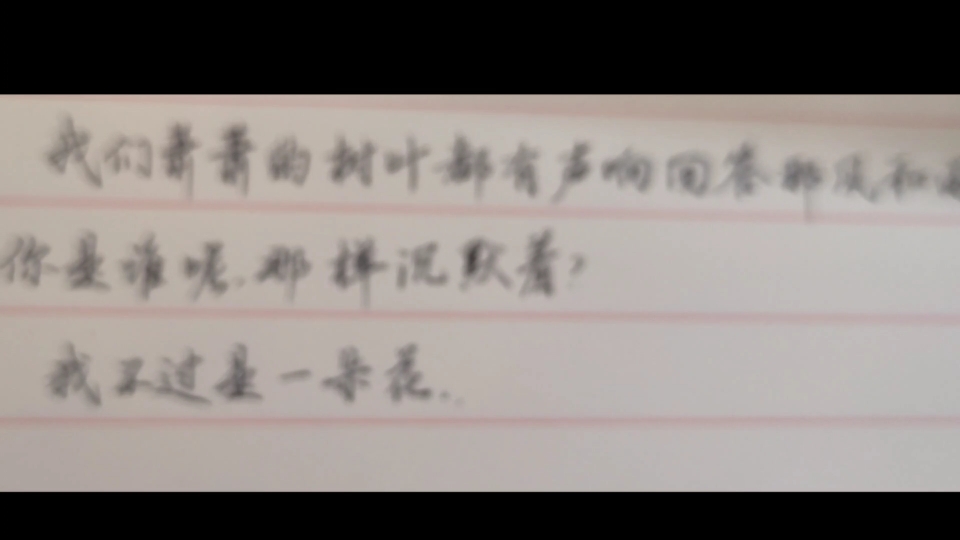 我们萧萧的树叶都有声响回答那风和
你是谁呢,那样沉默着?
我不过是一朵花.